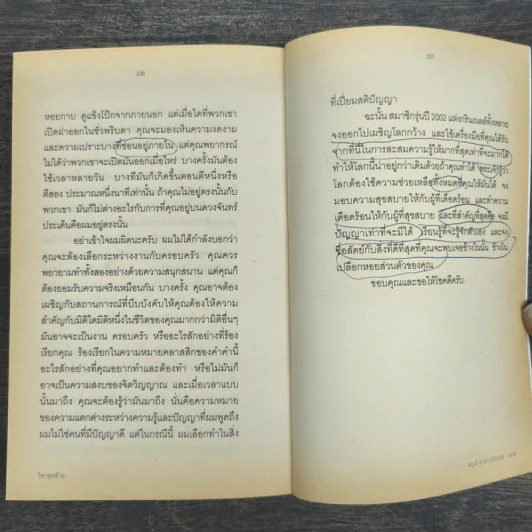 206
หอยกาบ ดูแข็งโป๊กจากภายนอก แต่เมื่อใดที่พวกเขา
เปิดฝาออกในชั่วพริบตา คุณจะมองเห็นความงดงาม
และความเปราะบางที่ซ่อนอยู่ภายใน แต่คุณพยากรณ์
ไม่ได้ว่าพวกเขาจะเปิดมันออกเมื่อไหร่ บางครั้งมันต้อง
ใช้เวลาหลายวัน บางทีมันก็เกิดขึ้นตอนตีหนึ่งหรือ
ตีสอง ประมาณหนึ่งนาทีเท่านั้น ถ้าคุณไม่อยู่ตรงนั้นกับ
พวกเขา มันก็ไม่ต่างอะไรกับการที่คุณอยู่บนดวงจันทร์
ประเด็นคือผมอยู่ตรงนั้น
อย่าเข้าใจผมผิดนะครับ ผมไม่ได้กำลังบอกว่า
คุณจะต้องเลือกระหว่างงานกับครอบครัว คุณควร
พยายามทำทั้งสองอย่างด้วยความสนุกสนาน แต่คุณก็
ต้องยอมรับความจริงเหมือนกัน บางครั้ง คุณอาจต้อง
เผชิญกับสถานการณ์ที่บีบบังคับให้คุณต้องให้ความ
สำคัญกับมิติใดมิติหนึ่งในชีวิตของคุณมากกว่ามิติอื่นๆ
มันอาจจะเป็นงาน ครอบครัว หรืออะไรสักอย่างที่ร้อง
เรียกคุณ ร้องเรียกในความหมายคลาสสิกของคำคำนี้
อะไรสักอย่างที่คุณอยากทำและต้องทำ หรือไม่มันก็
อาจเป็นความสงบของจิตวิญญาณ และเมื่อเวลาแบบ
นั้นมาถึง คุณจะต้องรู้ว่ามันมาถึง นั่นคือความหมาย
ของความแตกต่างระหว่างความรู้และปัญญาที่ผมพูดถึง
ผมไม่ใช่คนที่มีปัญญาดี แต่ในกรณีนี้ ผมเลือกทำในสิ่ง
วิชาสุดท้าย
207
ที่เปี่ยมสติปัญญา
ฉะนั้น สมาชิกรุ่นปี 2002 แห่งกรินเนลล์ทั้งหลาย
จงออกไปเผชิญโลกกว้าง และใช้เครื่องมือที่คุณได้รับ
จากที่นี่ในการสะสมความรู้ให้มากที่สุดเท่าที่จะมากได้
ทำให้โลกนี้น่าอยู่กว่าเดิมด้วยถ้าคุณทำได้ เพราะเรารู้ว่า
โลกต้องใช้ความช่วยเหลือทั้งหมดที่คุณให้มันได้ จง
มอบความสุขสบายให้กับผู้ที่เดือดร้อน และทำความ
เดือดร้อนให้กับผู้ที่สุขสบาย และที่สำคัญที่สุดคือ จงมี
ปัญญาเท่าที่จะมีได้ เรียนรู้ที่จะรู้จักตัวเอง และจง
ซื่อสัตย์กับสิ่งที่ดีที่สุดที่คุณจะพบเจอข้างในนั้น ข้างใน
เปลือกหอยส่วนตัวของคุณ
ขอบคุณและขอให้โชคดีครับ.